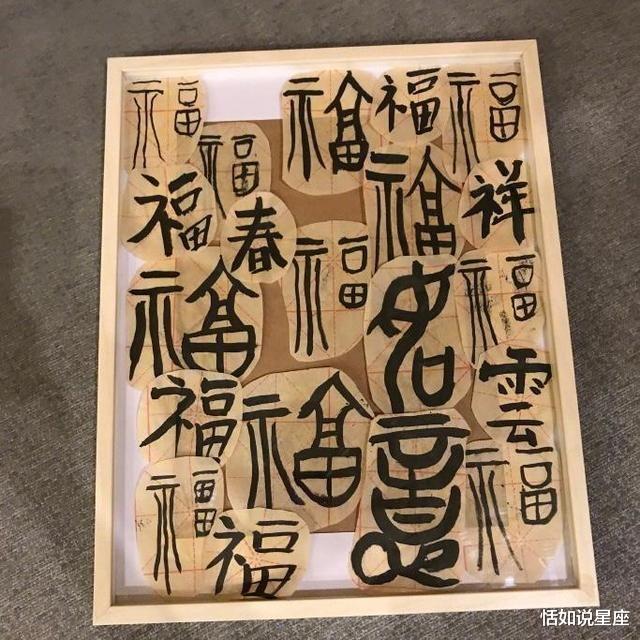 福
福
福
福
福
福
福
祥
福
春
福
福
如意
福
雲
福
福
福
福
福
恬如说星座